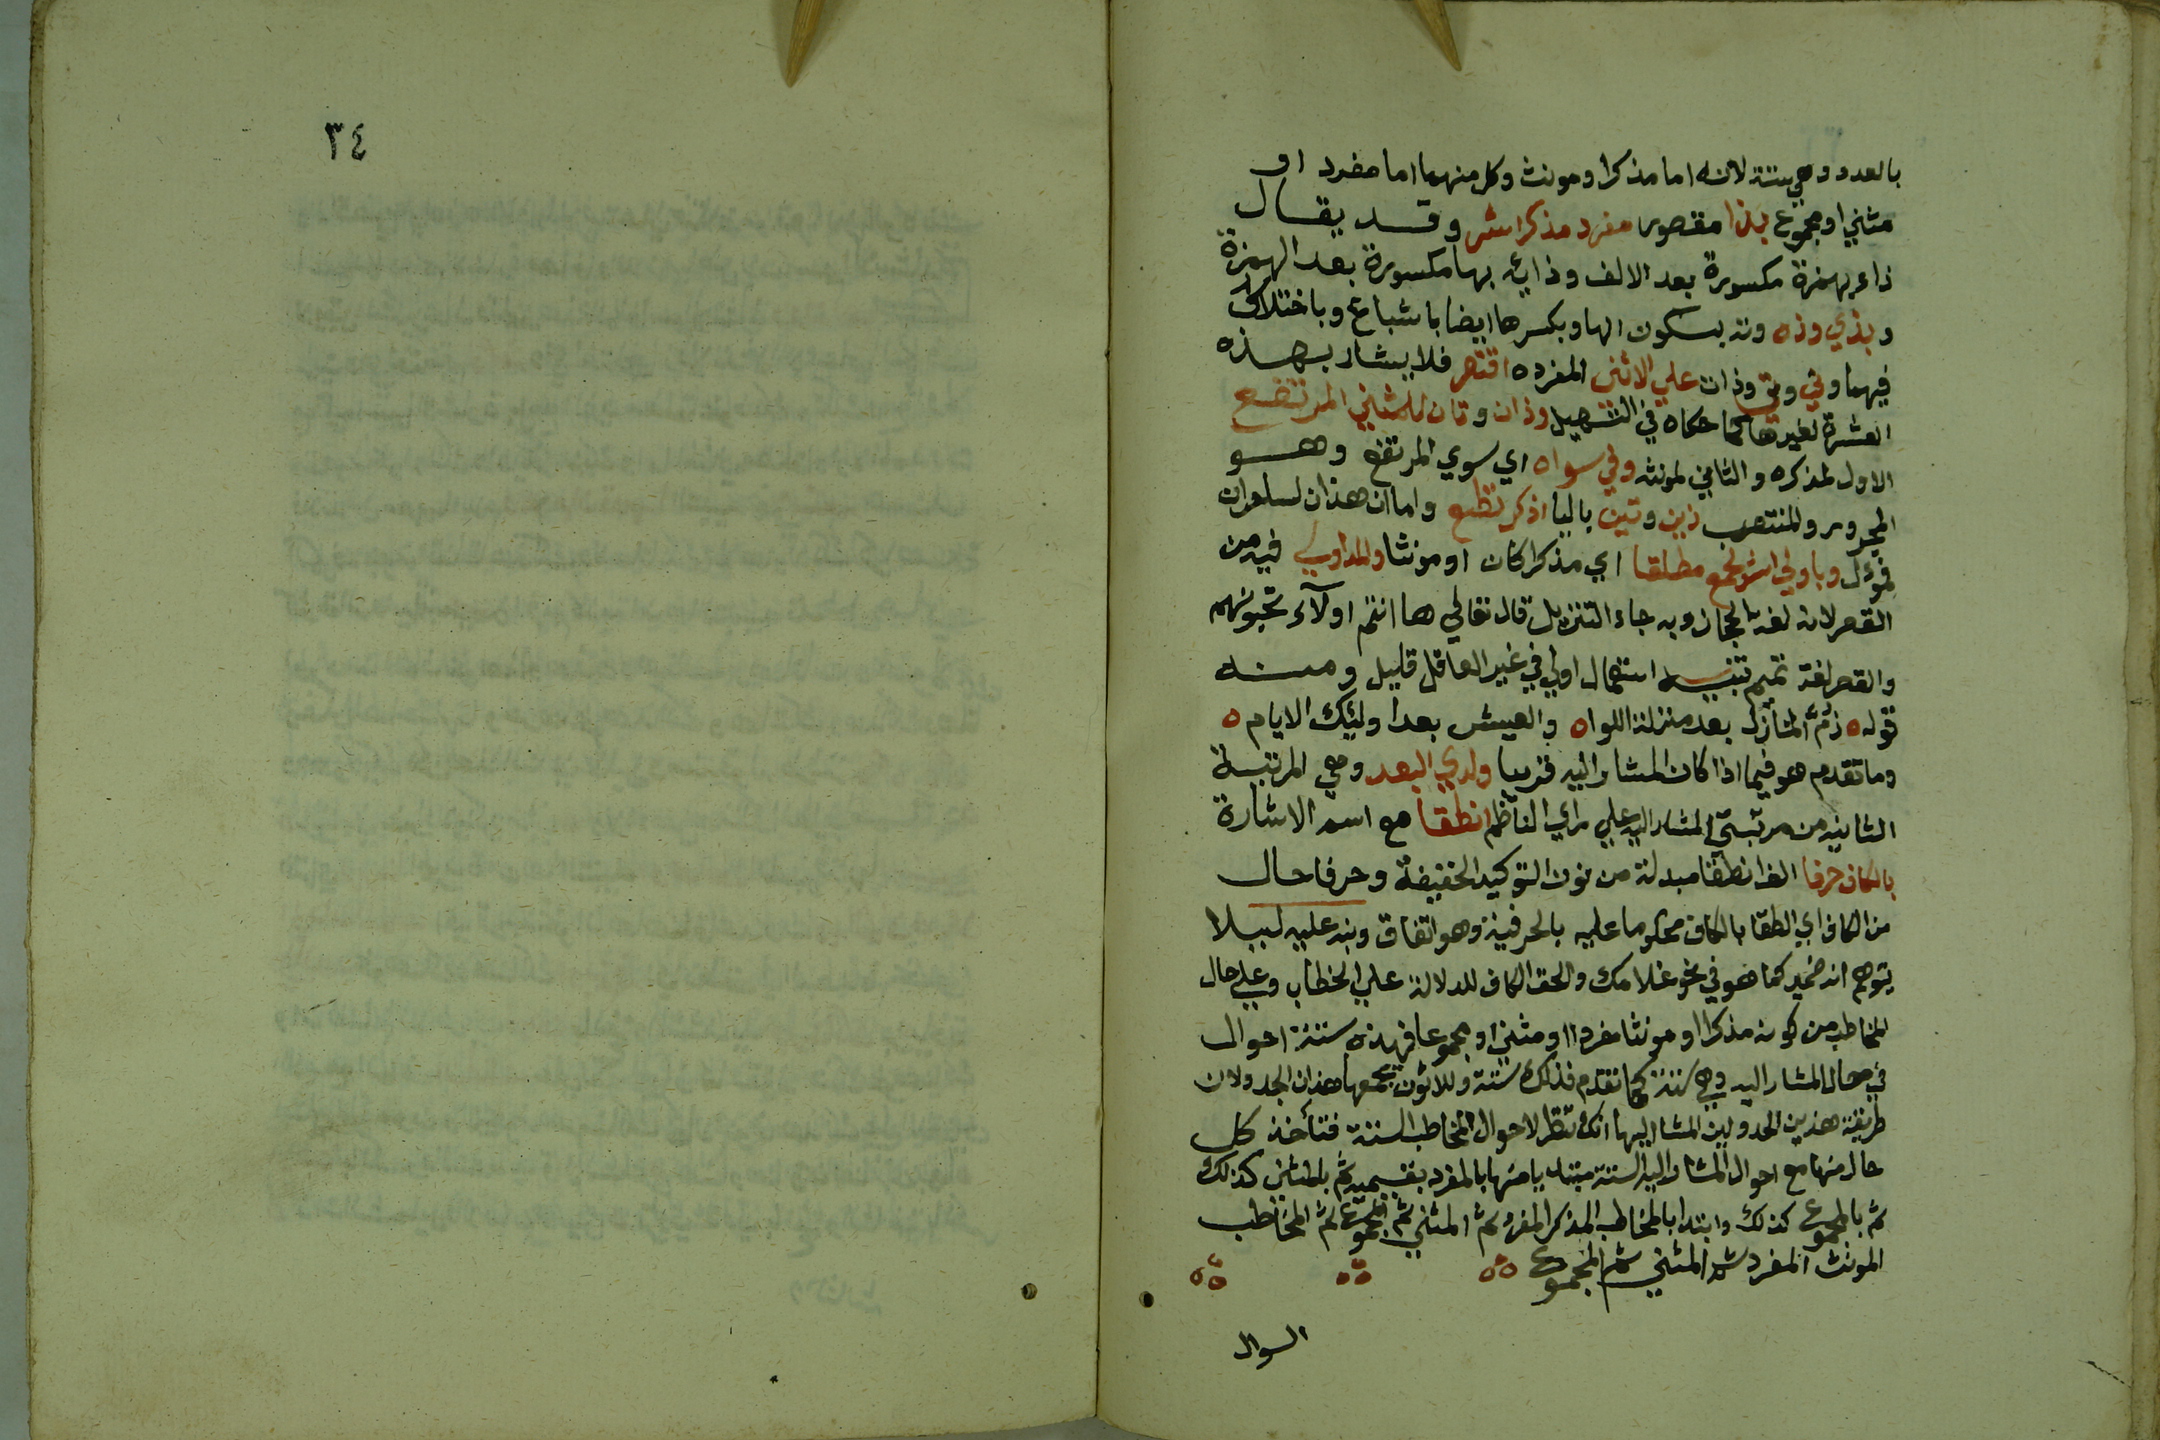 بالعدد وهي ستة لانه اما مذكر او مونث وكل منهما اما مفرد او
مثني او مجموع بذا مقصورا مفرد مذكر اشر وقد يقال
ذاء بهمزة مكسورة بعد الالف وذائه بها مكسورة بعد الهمزة
وبذي وذه وته بسكون الها وبكسرها ايضا باشباع وباختلاس
فيهما وتي وتا وذات علي الانثي المفرده اقتصر فلا يشار بهذه
العشرة لغيرها كما حكاه في التسهيل وذان وتان للمثني المرتفع
الاول لمذكره والثاني لمونثه وفي سواه اي سوي المرتفع وهو
المجرور والمنتصب ذين وتين باليا اذكر تطع واما ان هذان لساحران
فمؤل وباولي اشر لجمع مطلقا اي مذكرا كان او مونثا والمد اولي فيه من
القصر لانه لغة الحجاز وبه جاء التنزيل قال تعالي ها انتم اولآء تحبونهم
والقصر لغة تميم تنبيه استعمال اولي في غير العاقل قليل ومنه
قوله ه ذم المنازل بعد منزلة اللوا ه والعيش بعد اولئك الايام ه
وما تقدم هو فيما اذا كان المشار اليه قريبا ولدي البعد وهي المرتبة
الثانية من مرتبتي المشار اليه علي راي الناظم انطقا مع اسم الاشارة
بالكاف حرفا الف انطقا مبدلة من نون التوكيد الخفيفة وحرفا حال
من الكاف اي انطقا بالكاف محكوما عليه بالحرفية وهو اتفاق ونبه عليه ليلا
يتوهم انه ضمير كما هو في نحو غلامك والحق الكاف للدلالة علي الخطاب وعلي حال
المخاطب من كونه مذكرا او مونثا مفردا او مثني او مجموعا فهذه ستة احوال
في حال المشار اليه وهي ستة كما تقدم فذلك ستة وثلاثون يجمعها هذان الجدولان
طريقة هذين الجدولين المشار اليهما انك تنظر لاحوال المخاطب الستة فتأخذ كل
حال منها مع احوال المشار اليه الستة مبتديا منها بالمفرد بقسميه ثم بالمثني كذلك
ثم بالمجموع كذلك وابتدا بالمخاطب المذكر المفرد ثم المثني ثم المجموع ثم المخاطب
المونث المفرد ثم المثني ثم المجموع
السوال
٣٤